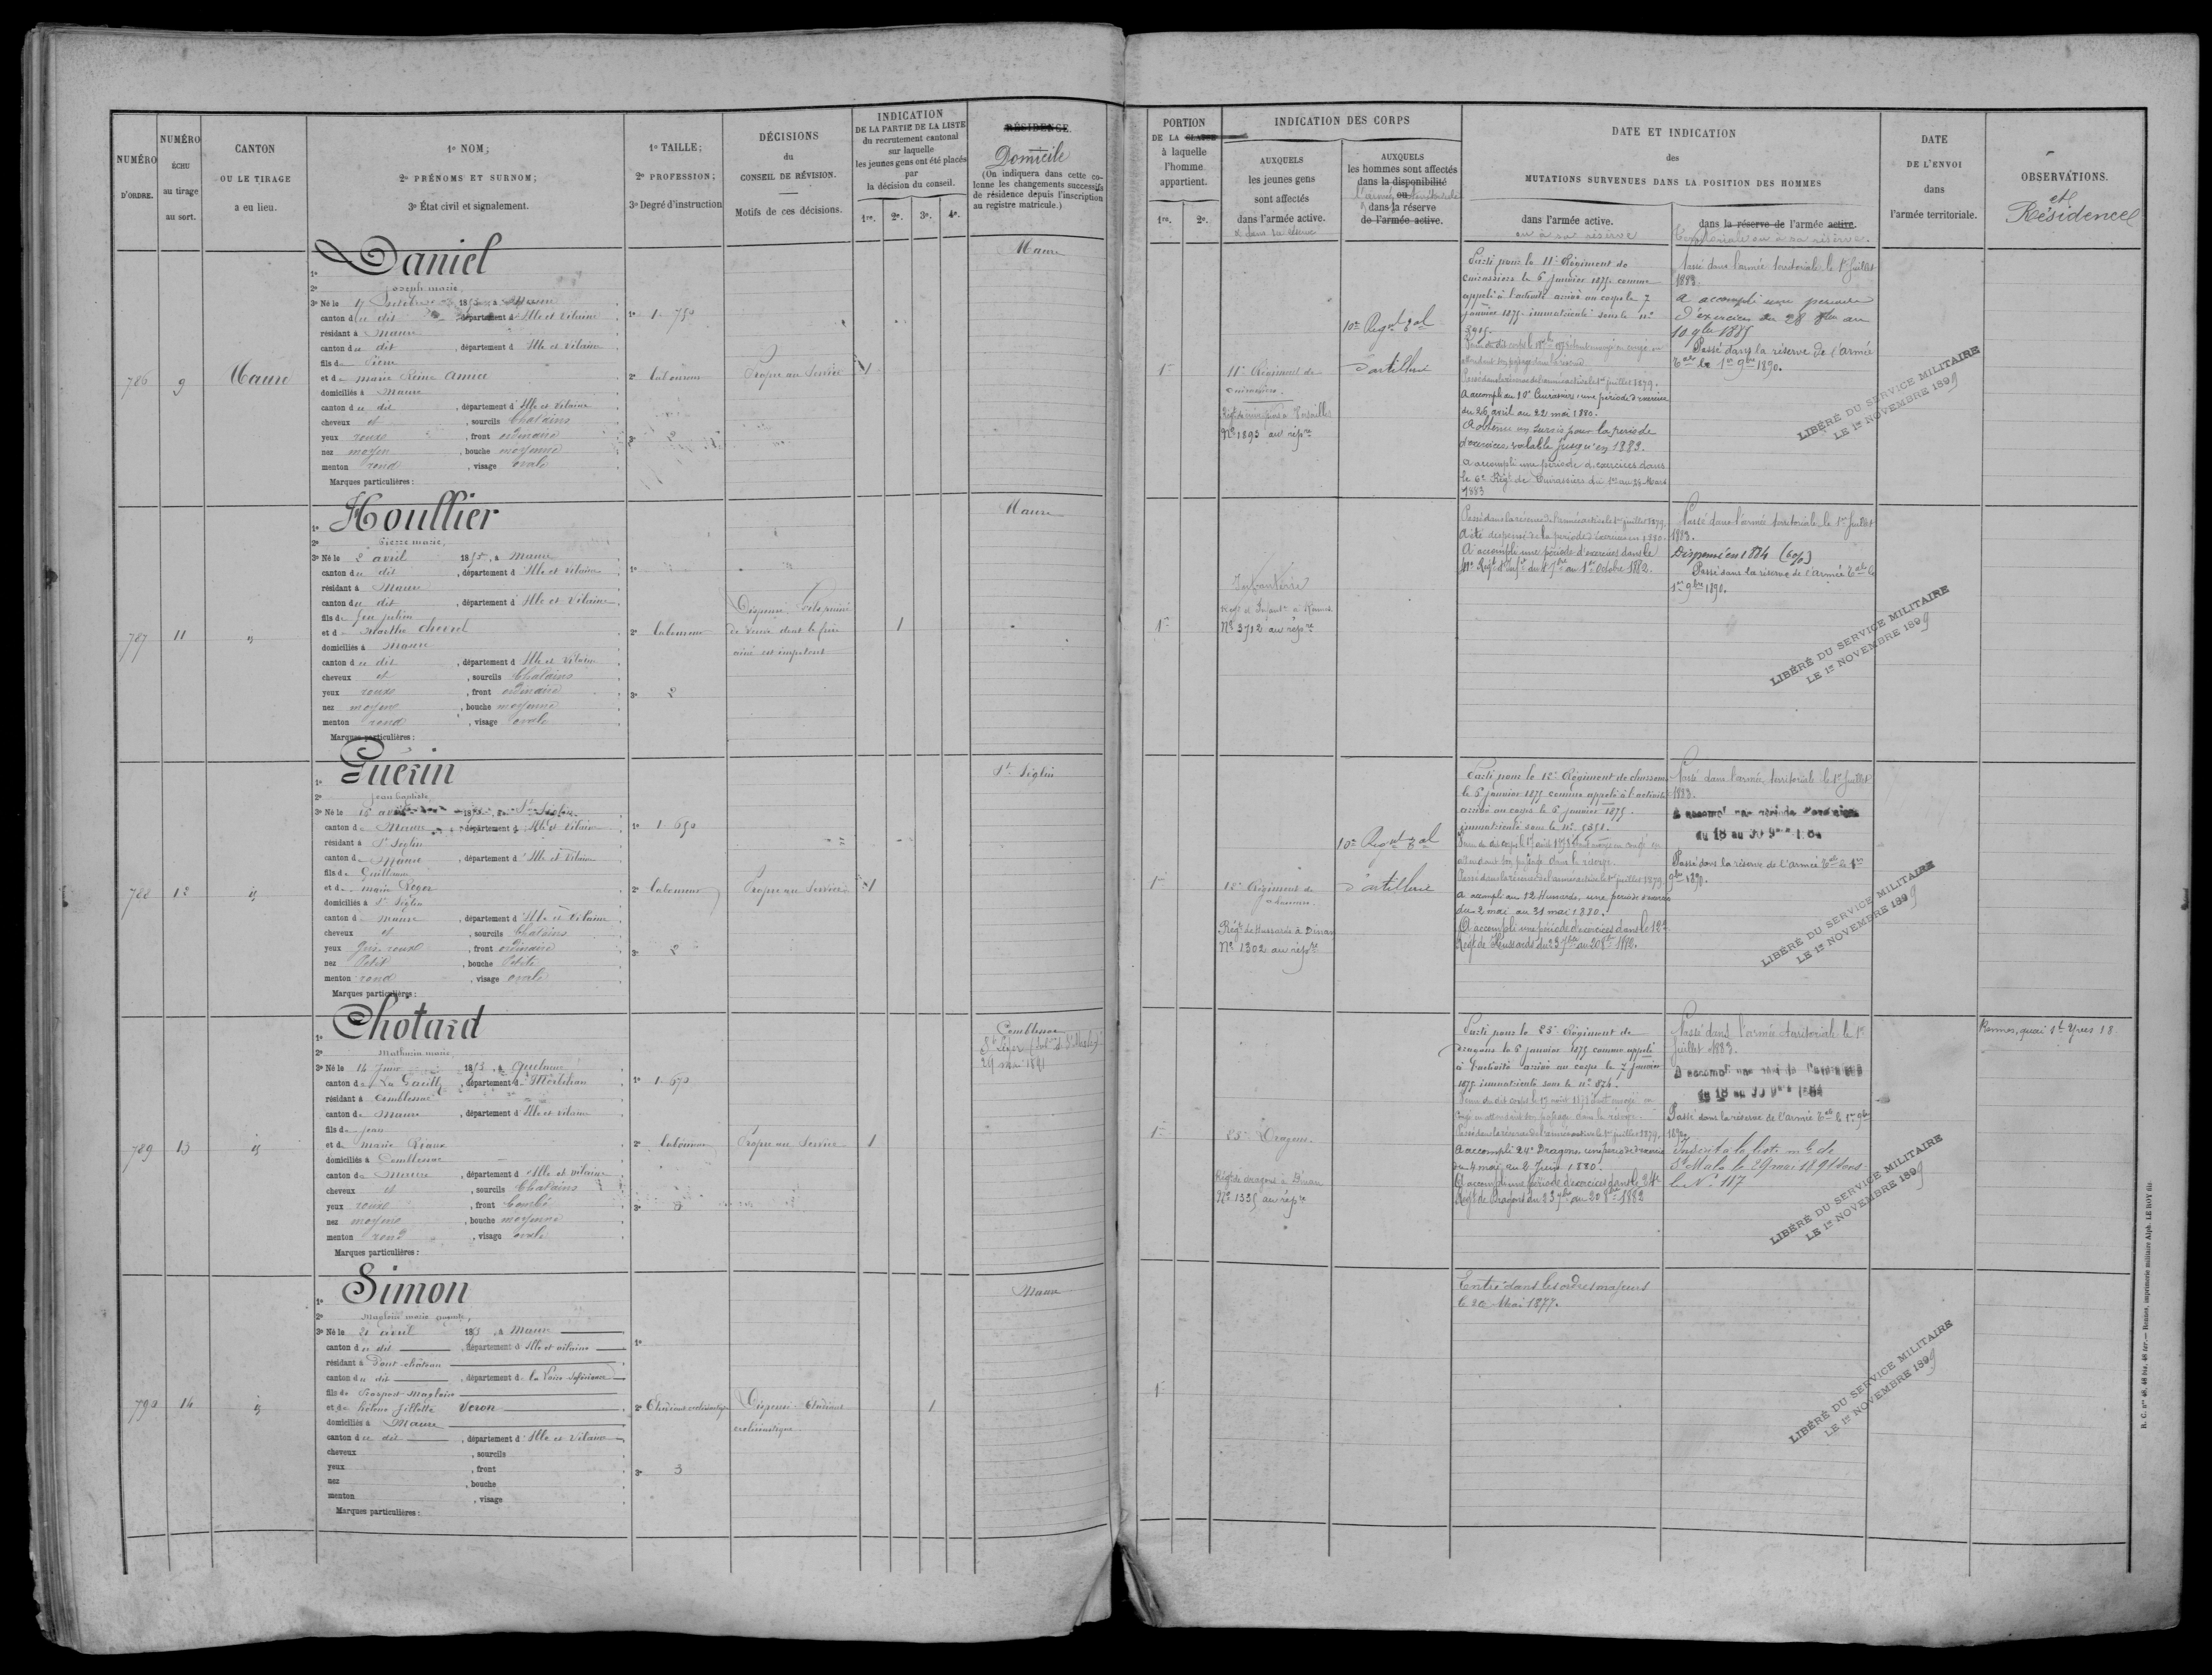 NUMÉRO
D'ORDRE.
NUMÉRO
ÉCHU
au tirage
au sort.
CANTON
OU LE TIRAGE
a eu lieu.
1º NOM;
2º PRÉNOMS ET SURNOM;
3º État civil et signalement.
1º TAILLE;
2º PROFESSION;
3º Degré d'instruction
DÉCISIONS
du
CONSEIL DE RÉVISION.
Motifs de ces décisions.
INDICATION
DE LA PARTIE DE LA LISTE
du recrutement cantonal
sur laquelle
les jeunes gens ont été placés
par
la décision du conseil.
1re. 2e. 3e. 4e.
RÉSIDENCE.
Domicile
(On indiquera dans cette co-
lonne les changements successifs
de résidence depuis l'inscription
au registre matricule.)
PORTION
DE LA CLASSE
à laquelle
l'homme
appartient.
1re. 2e.
INDICATION DES CORPS
AUXQUELS
les jeunes gens
sont affectés
dans l'armée active.
AUXQUELS
les hommes sont affectés
dans la disponibilité
ou
dans la réserve
de l'armée active.
DATE ET INDICATION
des
MUTATIONS SURVENUES DANS LA POSITION DES HOMMES
dans l'armée active.
ou à sa réserve
dans la réserve de l'armée active.
territoriale ou à sa réserve.
DATE
DE L'ENVOI
dans
l'armée territoriale.
OBSERVATIONS.
et
Résidence
786
9
Maure
1º Daniel
2º Joseph marie
3º Né le 17 1855, à Maure
canton du dit, département d'Ille et Vilaine
résidant à Maure
canton du dit, département d'Ille et Vilaine
fils de Pierre
et de marie Reine Amice
domiciliés à Maure
canton du dit, département d'Ille et Vilaine
cheveux et, sourcils Chatains
yeux roux, front ordinaire
nez moyen, bouche moyenne
menton rond, visage ovale
Marques particulières:
1º 1.750
2º Laboureur
3º 2
Propre au Service
1
Maure
1re
11e Régiment de
cuirassiers.
Nº 1893 au rép.re
10e Reg.nt T.al
d'artillerie
Parti pour le 11e Régiment de
cuirassiers le 6 janvier 1877 comme
appelé à l'activité arrivé au corps le 7
janvier 1877 immatriculé sous le nº
Passé dans la réserve de l'armée active le 1er juillet 1879.
A accompli au 10e Cuirassiers une période d'exercices
du 26 avril au 22 mai 1880.
A obtenu un sursis pour la période
d'exercices valable jusqu'en 1883.
A accompli une période d'exercices dans
le 6e Régt de Cuirassiers du 1er au 28 Mars
1883
Passé dans l'armée territoriale le 1er Juillet
1883.
A accompli une période
d'exercices du 28 8bre au
10 9bre 1885
Passé dans la réserve de l'armée
T.ale le 1er 9bre 1890.
LIBÉRÉ DU SERVICE MILITAIRE
LE 1er NOVEMBRE 1899
787
11
id
1º Houllier
2º Pierre marie,
3º Né le 2 avril 1855, à Maure
canton du dit, département d'Ille et Vilaine
résidant à Maure
canton du dit, département d'Ille et Vilaine
fils de feu julien
et de Marthe Chevrel
domiciliés à Maure
canton du dit, département d'Ille et Vilaine
cheveux et, sourcils Chatains
yeux roux, front ordinaire
nez moyen, bouche moyenne
menton rond, visage ovale
Marques particulières:
1º
2º Laboureur
3º 2
Dispensé. Fils puiné
de veuve dont le frère
ainé est impotent
1
Maure
1re
Infanterie
Regt d'Infant.ie à Rennes
Nº 3712 au rép.re
Passé dans la réserve de l'armée active le 1er juillet 1879.
A été dispensé de la période d'exercices en 1880.
A accompli une période d'exercices dans le
Passé dans l'armée territoriale le 1er Juillet
1883.
Dispensé en 1884 (6%)
Passé dans la réserve de l'armée T.ale le
1er 9bre 1890.
LIBÉRÉ DU SERVICE MILITAIRE
LE 1er NOVEMBRE 1899
788
12
id
1º Guérin
2º jean baptiste
3º Né le 16 avril 1855, à St Séglin
canton de Maure, département d'Ille et Vilaine
résidant à St Séglin
canton de Maure, département d'Ille et Vilaine
fils de Guillaume
et de marie Roger
domiciliés à St Séglin
canton de Maure, département d'Ille et Vilaine
cheveux et, sourcils Chatains
yeux gris roux, front ordinaire
nez Petit, bouche Petite
menton rond, visage ovale
Marques particulières:
1º 1.650
2º Laboureur
3º 2
Propre au Service
1
St Séglin
1re
12e Régiment de
chasseurs.
Régt de Hussards à Dinan
Nº 1302 au rép.re
10e Reg.nt T.al
d'artillerie
Parti pour le 12e Régiment de chasseurs
le 5 janvier 1877 comme appelé à l'activité
arrivé au corps le 6 janvier 1877.
immatriculé sous le nº
Passé dans la réserve de l'armée active le 1er juillet 1879
A accompli au 12 Hussards, une période d'exercices
du 2 mai au 31 mai 1880.
A accompli une période d'exercices dans le 12e
Régt de Hussards du 23 7bre au 20 8bre 1882.
Passé dans l'armée territoriale le 1er Juillet
1883.
A accompli une période d'exercices
du 18 au 30 9bre 1884
Passé dans la réserve de l'Armée T.ale le 1er
9bre 1890.
LIBÉRÉ DU SERVICE MILITAIRE
LE 1er NOVEMBRE 1899
789
13
id
1º Chotard
2º Mathurin marie,
3º Né le 14 Juin 1855, à Quelneuc
canton de La Gacilly, département d Morbihan
résidant à Comblessac
canton de Maure, département d'Ille et Vilaine
fils de jean
et de marie Riaux
domiciliés à Comblessac
canton de Maure, département d'Ille et Vilaine
cheveux et, sourcils Chatains
yeux roux, front bombé
nez moyen, bouche moyenne
menton rond, visage ovale
Marques particulières:
1º 1.670
2º Laboureur
3º
Propre au Service
1
Comblessac
29 mai 1891
1re
25e Dragons.
Régt de dragons à Dinan
Nº 1335 au rép.re
Parti pour le 25e Régiment de
dragons le 6 janvier 1877 comme appelé
à l'activité arrivé au corps le 7 janvier
1877 immatriculé sous le nº 876.
Passé dans la réserve de l'armée active le 1er juillet 1879.
A accompli 24e Dragons, une période d'exercices
du 4 mai au 2 Juin 1880.
A accompli une période d'exercices dans le 24e
Régt de Dragons du 23 7bre au 20 8bre 1882
Passé dans l'armée territoriale le 1er
Juillet 1883.
A accompli une période d'exercices
du 18 au 30 9bre 1884
Passé dans la réserve de l'Armée T.ale le 1er 9bre
1890.
Inscrit à la liste m G de
St Malo le 29 mai 1891 sous
le Nº 117
LIBÉRÉ DU SERVICE MILITAIRE
LE 1er NOVEMBRE 1899
Rennes, quai St Yves 18
790
14
id
1º Simon
2º Magloire marie
3º Né le 21 avril 1855, à Maure
canton du dit, département d'Ille et Vilaine
résidant à Pont-château
canton du dit, département de la Loire Inférieure
fils de Prosper-Magloire
et de hélène Gillette Veron
domiciliés à Maure
canton du dit, département d'Ille et Vilaine
cheveux, sourcils
yeux, front
nez, bouche
menton, visage
Marques particulières:
1º
2º Etudiant ecclésiastique
3º 3
Dispensé. Etudiant
ecclésiastique.
1
Maure
1re
Entré dans les ordres majeurs
le 26 Mai 1877.
LIBÉRÉ DU SERVICE MILITAIRE
LE 1er NOVEMBRE 1899
R. C. nos 48, 48 bis, 48 ter.— Rennes, imprimerie militaire Alph. LE ROY fils